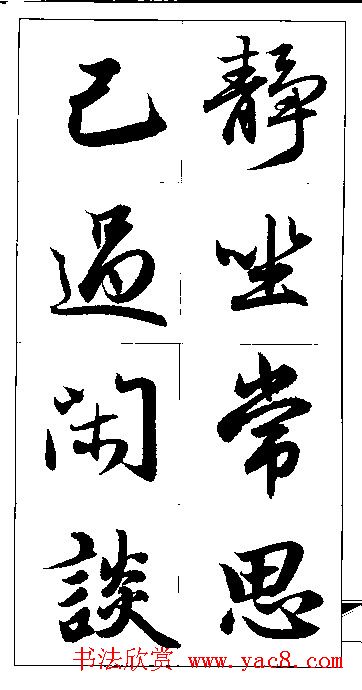 靜坐常思
己過閑談
书法欣赏 www.yac8.com